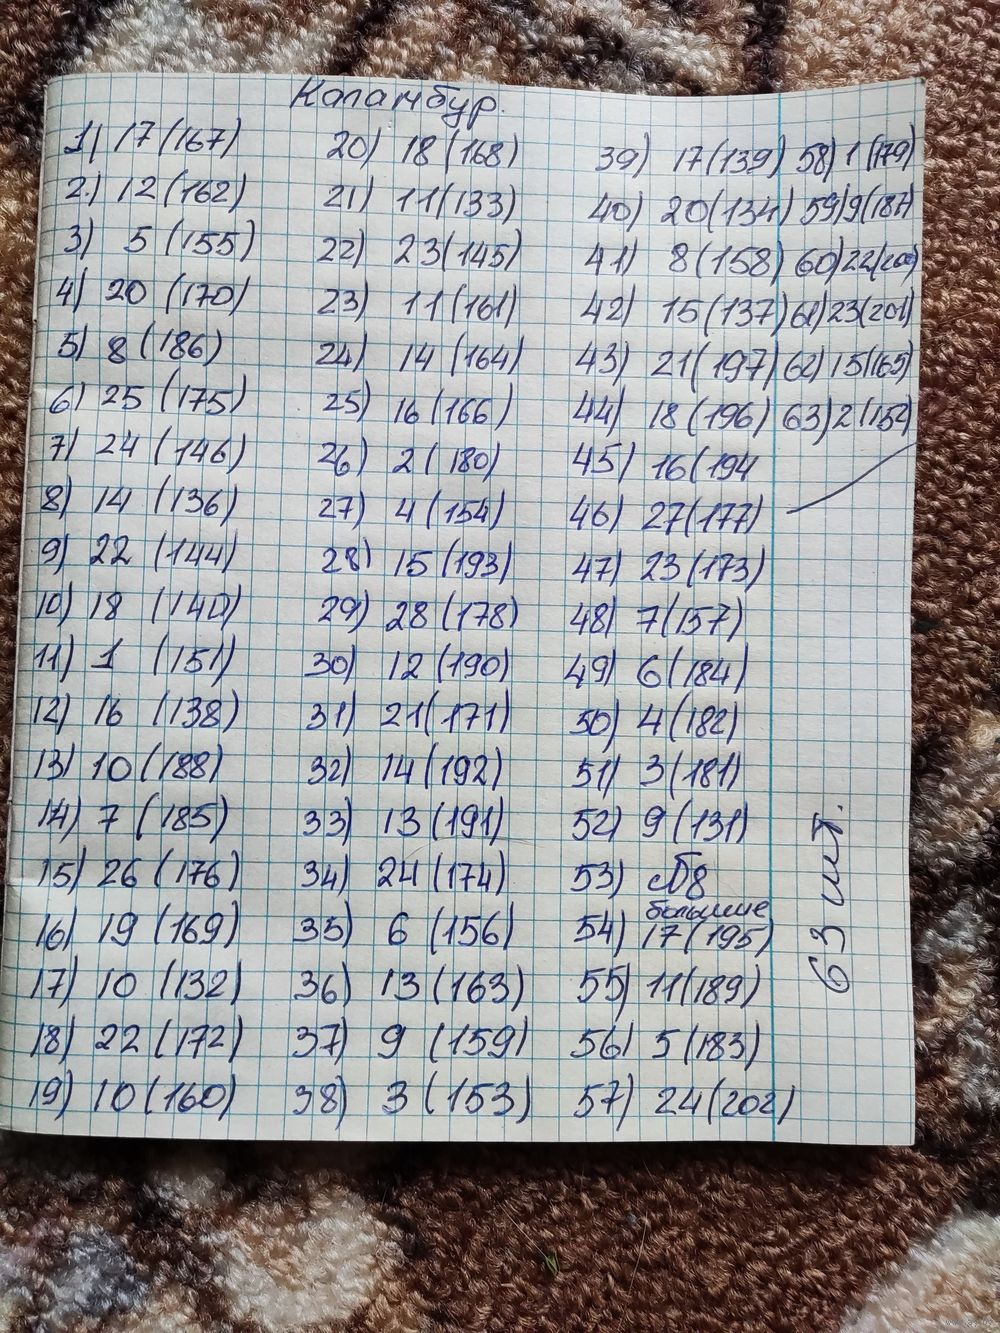 Каламбур.
1) 17 (167)
2) 12 (162)
3) 5 (155)
4) 20 (170)
5) 8 (186)
6) 25 (175)
7) 24 (146)
8) 14 (136)
9) 22 (144)
10) 18 (140)
11) 1 (151)
12) 16 (138)
13) 10 (188)
14) 7 (185)
15) 26 (176)
16) 19 (169)
17) 10 (132)
18) 22 (172)
19) 10 (160)
20) 18 (168)
21) 11 (133)
22) 23 (145)
23) 11 (161)
24) 14 (164)
25) 16 (166)
26) 2 (180)
27) 4 (154)
28) 15 (193)
29) 28 (178)
30) 12 (190)
31) 21 (171)
32) 14 (192)
33) 13 (191)
34) 24 (174)
35) 6 (156)
36) 13 (163)
37) 9 (159)
38) 3 (153)
39) 17 (139)
40) 20 (134)
41) 8 (158)
42) 15 (137)
43) 21 (197)
44) 18 (196)
45) 16 (194
46) 27 (177)
47) 23 (173)
48) 7 (157)
49) 6 (184)
50) 4 (182)
51) 3 (181)
52) 9 (131)
53) №8
большие
54) 17 (195)
55) 11 (189)
56) 5 (183)
57) 24 (202)
58) 1 (179)
59) 9 (187)
60) 22 (200)
61) 23 (201)
62) 15 (165)
63) 2 (152)
63 шт.